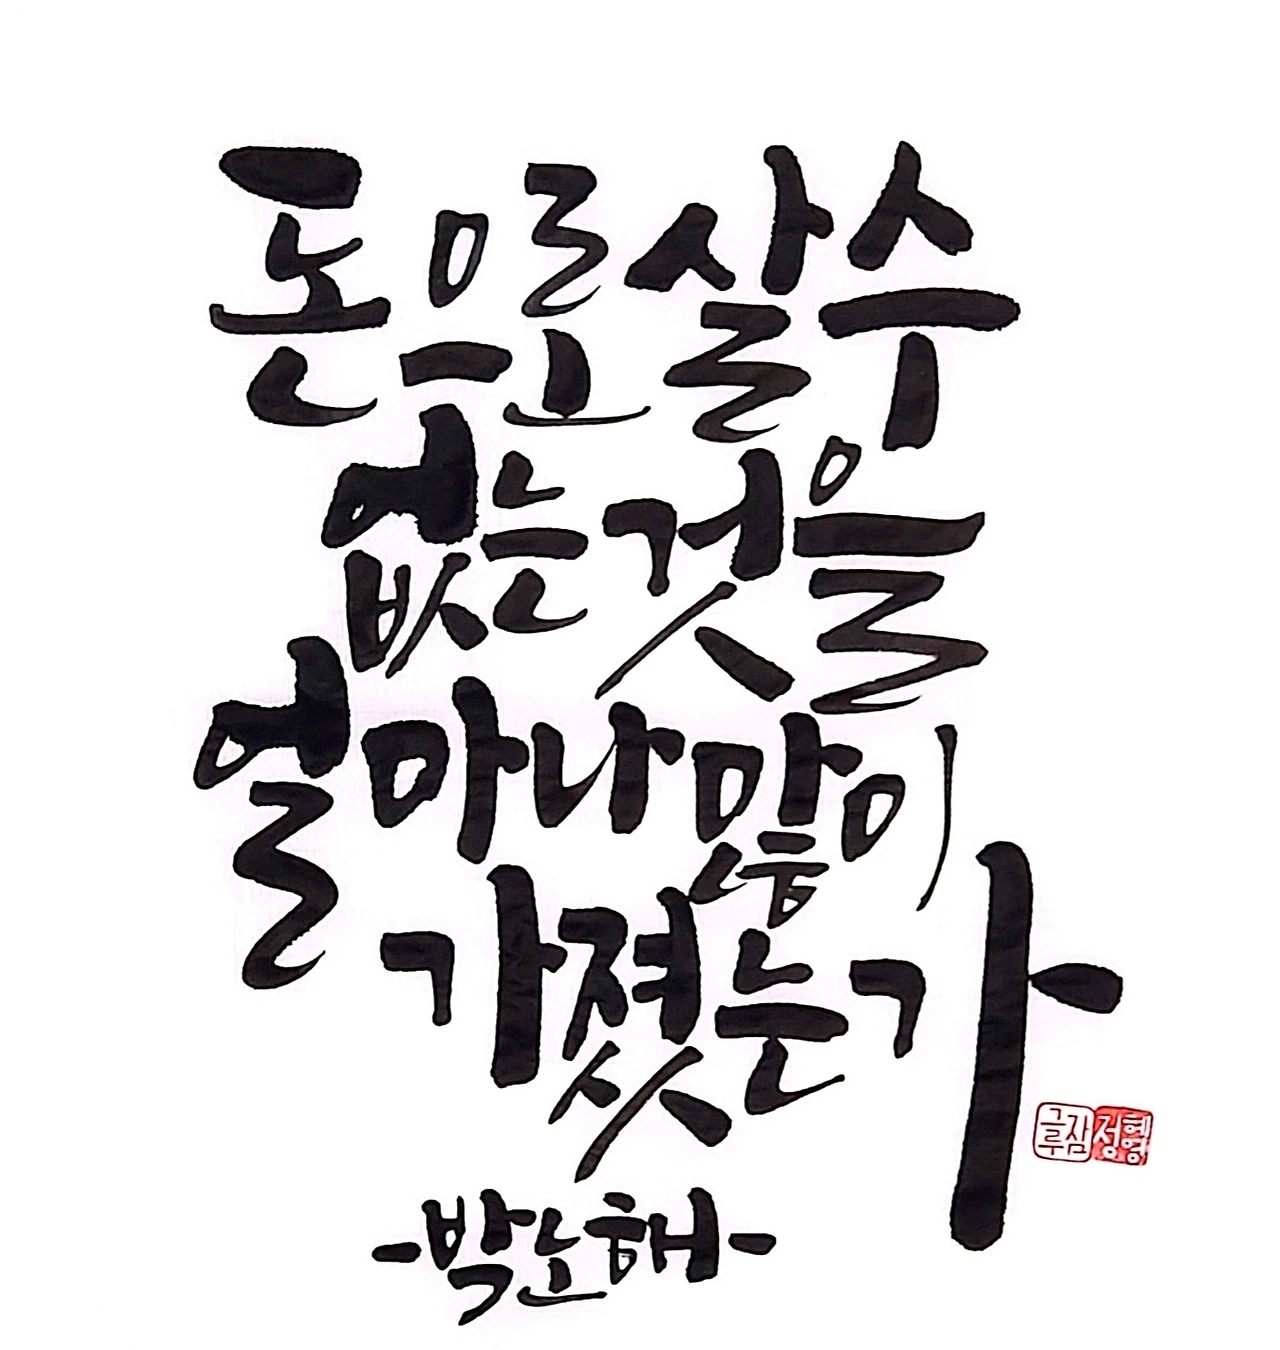 돈으로 살 수
없는 것을
얼마나 많이
가졌는가
글루잠 정혜영
-박노해-